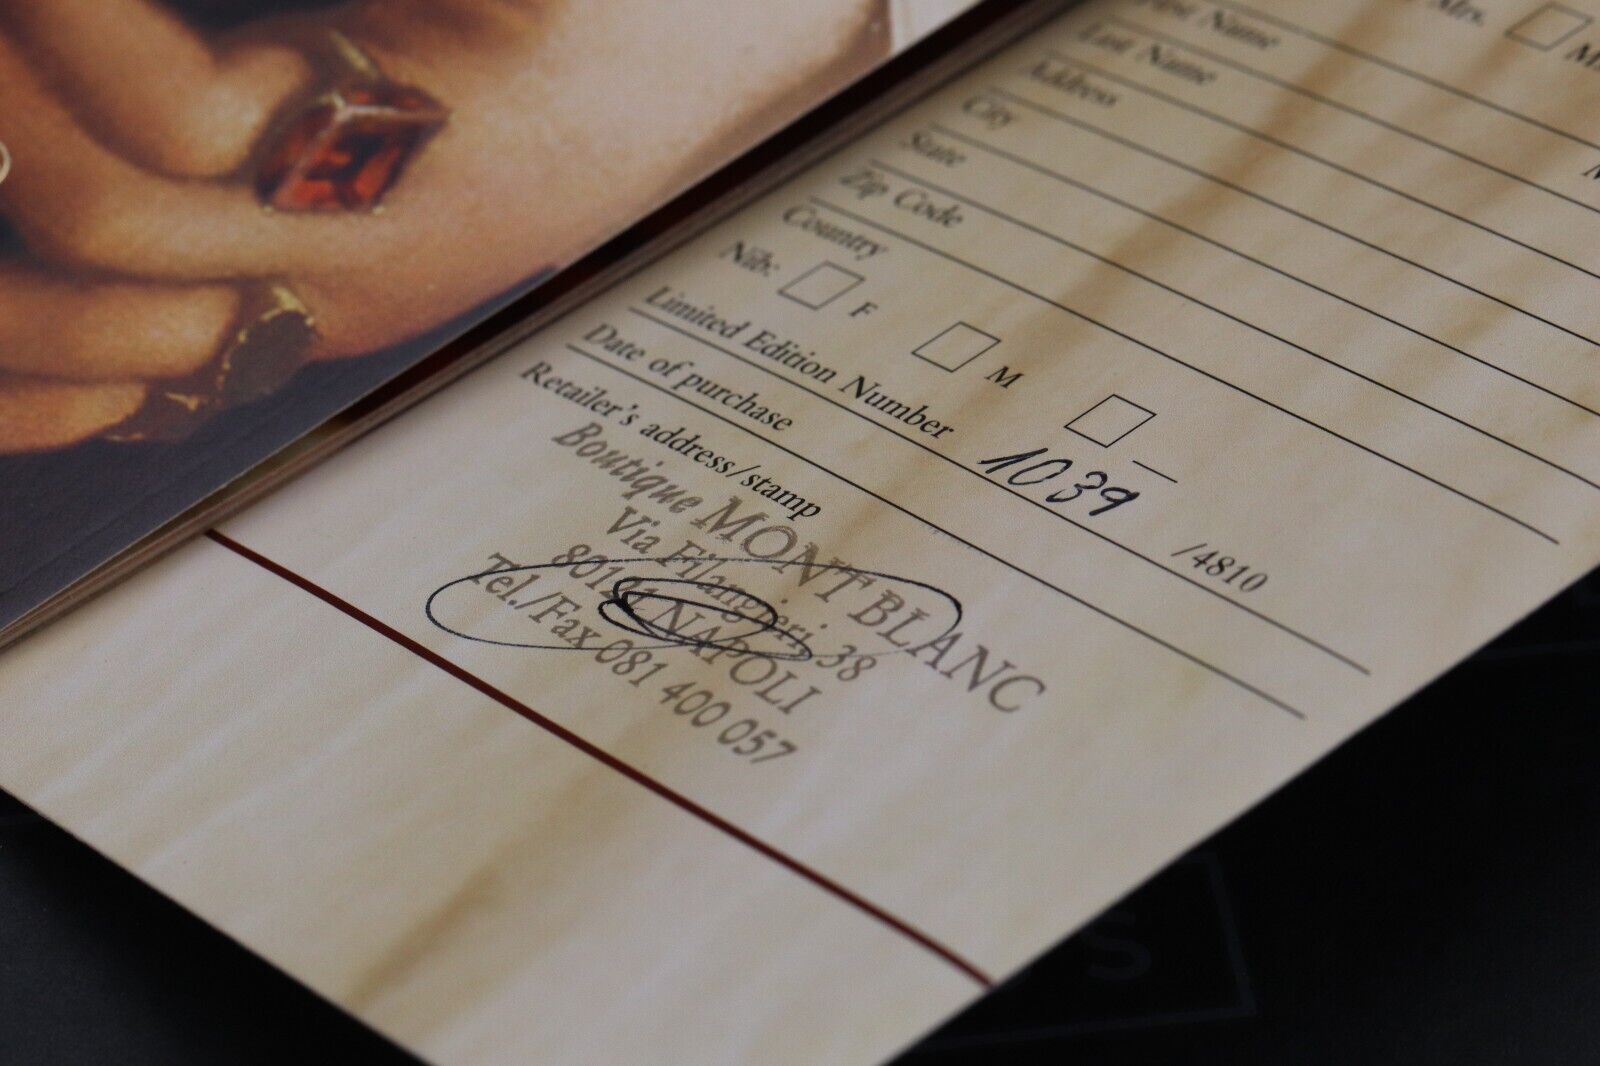 Mrs.
First Name
Last Name
Address
City
State
Zip Code
Country
Nib: F M
Limited Edition Number 1039 /4810
Date of purchase
Retailer's address/stamp
Boutique MONT BLANC
Via Filangieri, 38
80121 NAPOLI
Tel./Fax 081 400 057
S